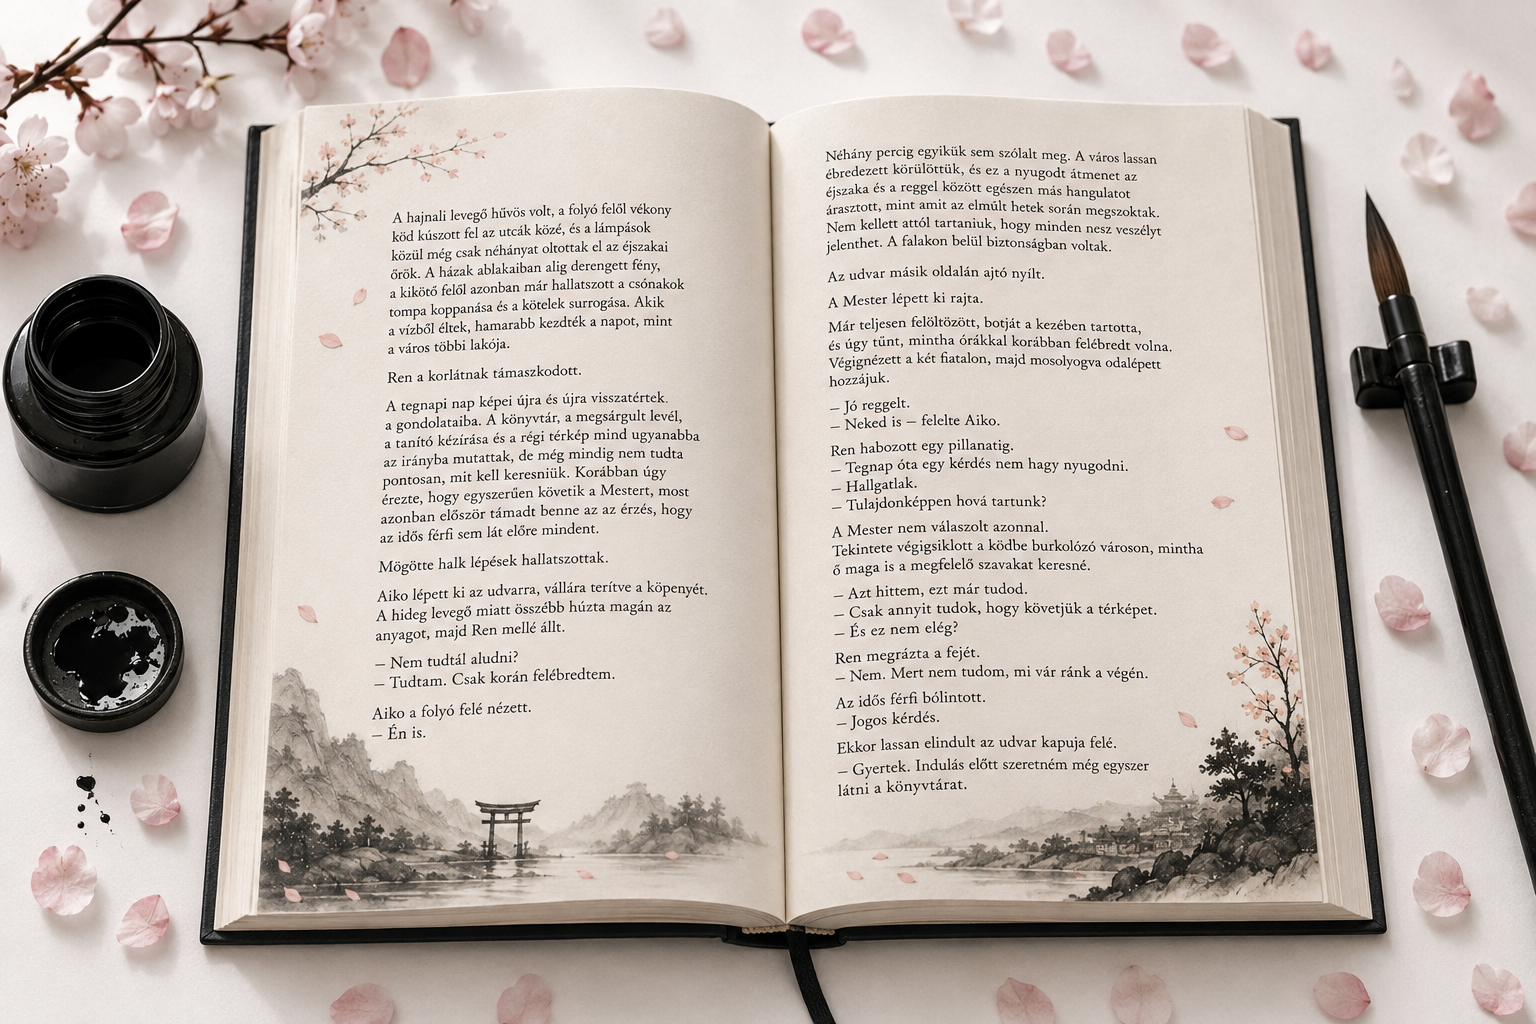 A hajnali levegő hűvös volt, a folyó felől vékony
köd kúszott fel az utcák közé, és a lámpások
közül még csak néhányat oltottak el az éjszakai
őrök. A házak ablakaiban alig derengett fény,
a kikötő felől azonban már hallatszott a csónakok
tompa koppanása és a kötelek surrogása. Akik
a vízből éltek, hamarabb kezdték a napot, mint
a város többi lakója.
Ren a korlátnak támaszkodott.
A tegnapi nap képei újra és újra visszatértek
a gondolataiba. A könyvtár, a megsárgult levél,
a tanító kézírása és a régi térkép mind ugyanabba
az irányba mutattak, de még mindig nem tudta
pontosan, mit kell keresniük. Korábban úgy
érezte, hogy egyszerűen követik a Mestert, most
azonban először támadt benne az az érzés, hogy
az idős férfi sem lát előre mindent.
Mögötte halk lépések hallatszottak.
Aiko lépett ki az udvarra, vállára terítve a köpenyét.
A hideg levegő miatt összébb húzta magán az
anyagot, majd Ren mellé állt.
– Nem tudtál aludni?
– Tudtam. Csak korán felébredtem.
Aiko a folyó felé nézett.
– Én is.
Néhány percig egyikük sem szólalt meg. A város lassan
ébredezett körülöttük, és ez a nyugodt átmenet az
éjszaka és a reggel között egészen más hangulatot
árasztott, mint amit az elmúlt hetek során megszoktak.
Nem kellett attól tartaniuk, hogy minden nesz veszélyt
jelenthet. A falakon belül biztonságban voltak.
Az udvar másik oldalán ajtó nyílt.
A Mester lépett ki rajta.
Már teljesen felöltözött, botját a kezében tartotta,
és úgy tűnt, mintha órákkal korábban felébredt volna.
Végignézett a két fiatalon, majd mosolyogva odalépett
hozzájuk.
– Jó reggelt.
– Neked is — felelte Aiko.
Ren habozott egy pillanatig.
– Tegnap óta egy kérdés nem hagy nyugodni.
– Hallgatlak.
– Tulajdonképpen hová tartunk?
A Mester nem válaszolt azonnal.
Tekintete végigsiklott a ködbe burkolózó városon, mintha
ő maga is a megfelelő szavakat keresné.
– Azt hittem, ezt már tudod.
– Csak annyit tudok, hogy követjük a térképet.
– És ez nem elég?
Ren megrázta a fejét.
– Nem. Mert nem tudom, mi vár ránk a végén.
Az idős férfi bólintott.
– Jogos kérdés.
Ekkor lassan elindult az udvar kapuja felé.
– Gyertek. Indulás előtt szeretném még egyszer
látni a könyvtárat.